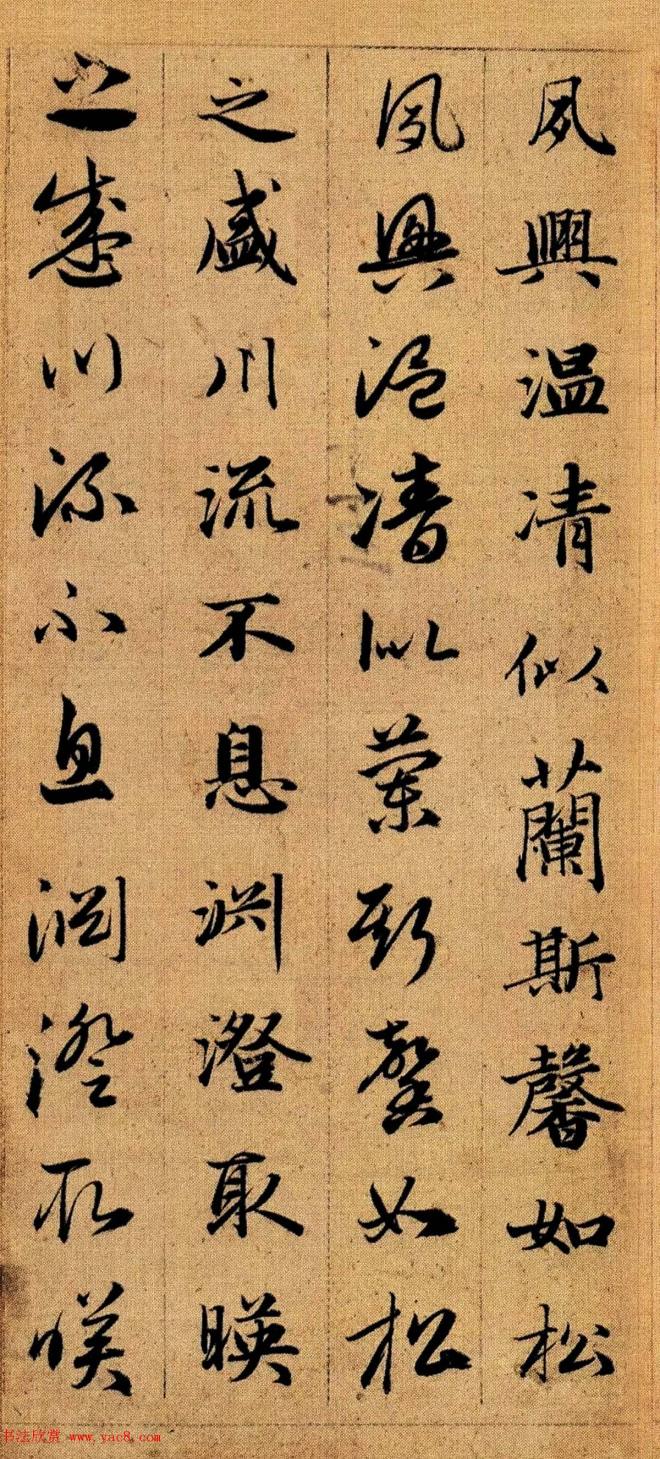 夙興温凊似蘭斯馨如松
夙興温凊似蘭斯馨如松
之盛川流不息淵澄取暎
之盛川流不息淵澄取暎
书法欣赏 www.yac8.com